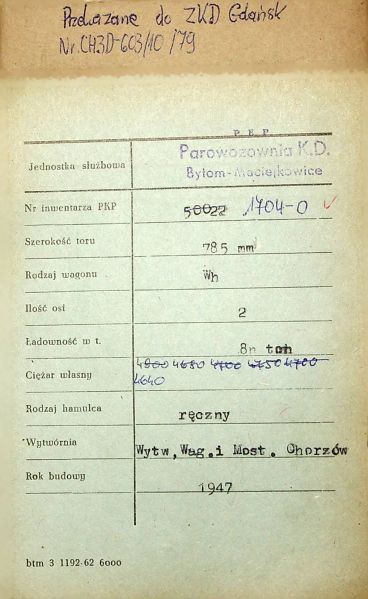 Przekazane do ZKD Gdańsk
Nr CH3D-603/10/79
P K P
Jednostka służbowa Parowozownia K.D.
Bytom-Maciejkowice
Nr inwentarza PKP 50022 1704-0
Szerokość toru 785 mm
Rodzaj wagonu Wh
Ilość osi 2
Ładowność w t. 8n ton
Ciężar własny 4800 4680 4700 4750 4700
4640
Rodzaj hamulca ręczny
Wytwórnia Wytw, Wag. i Most. Chorzów
Rok budowy 1947
btm 3 1192-62 6000